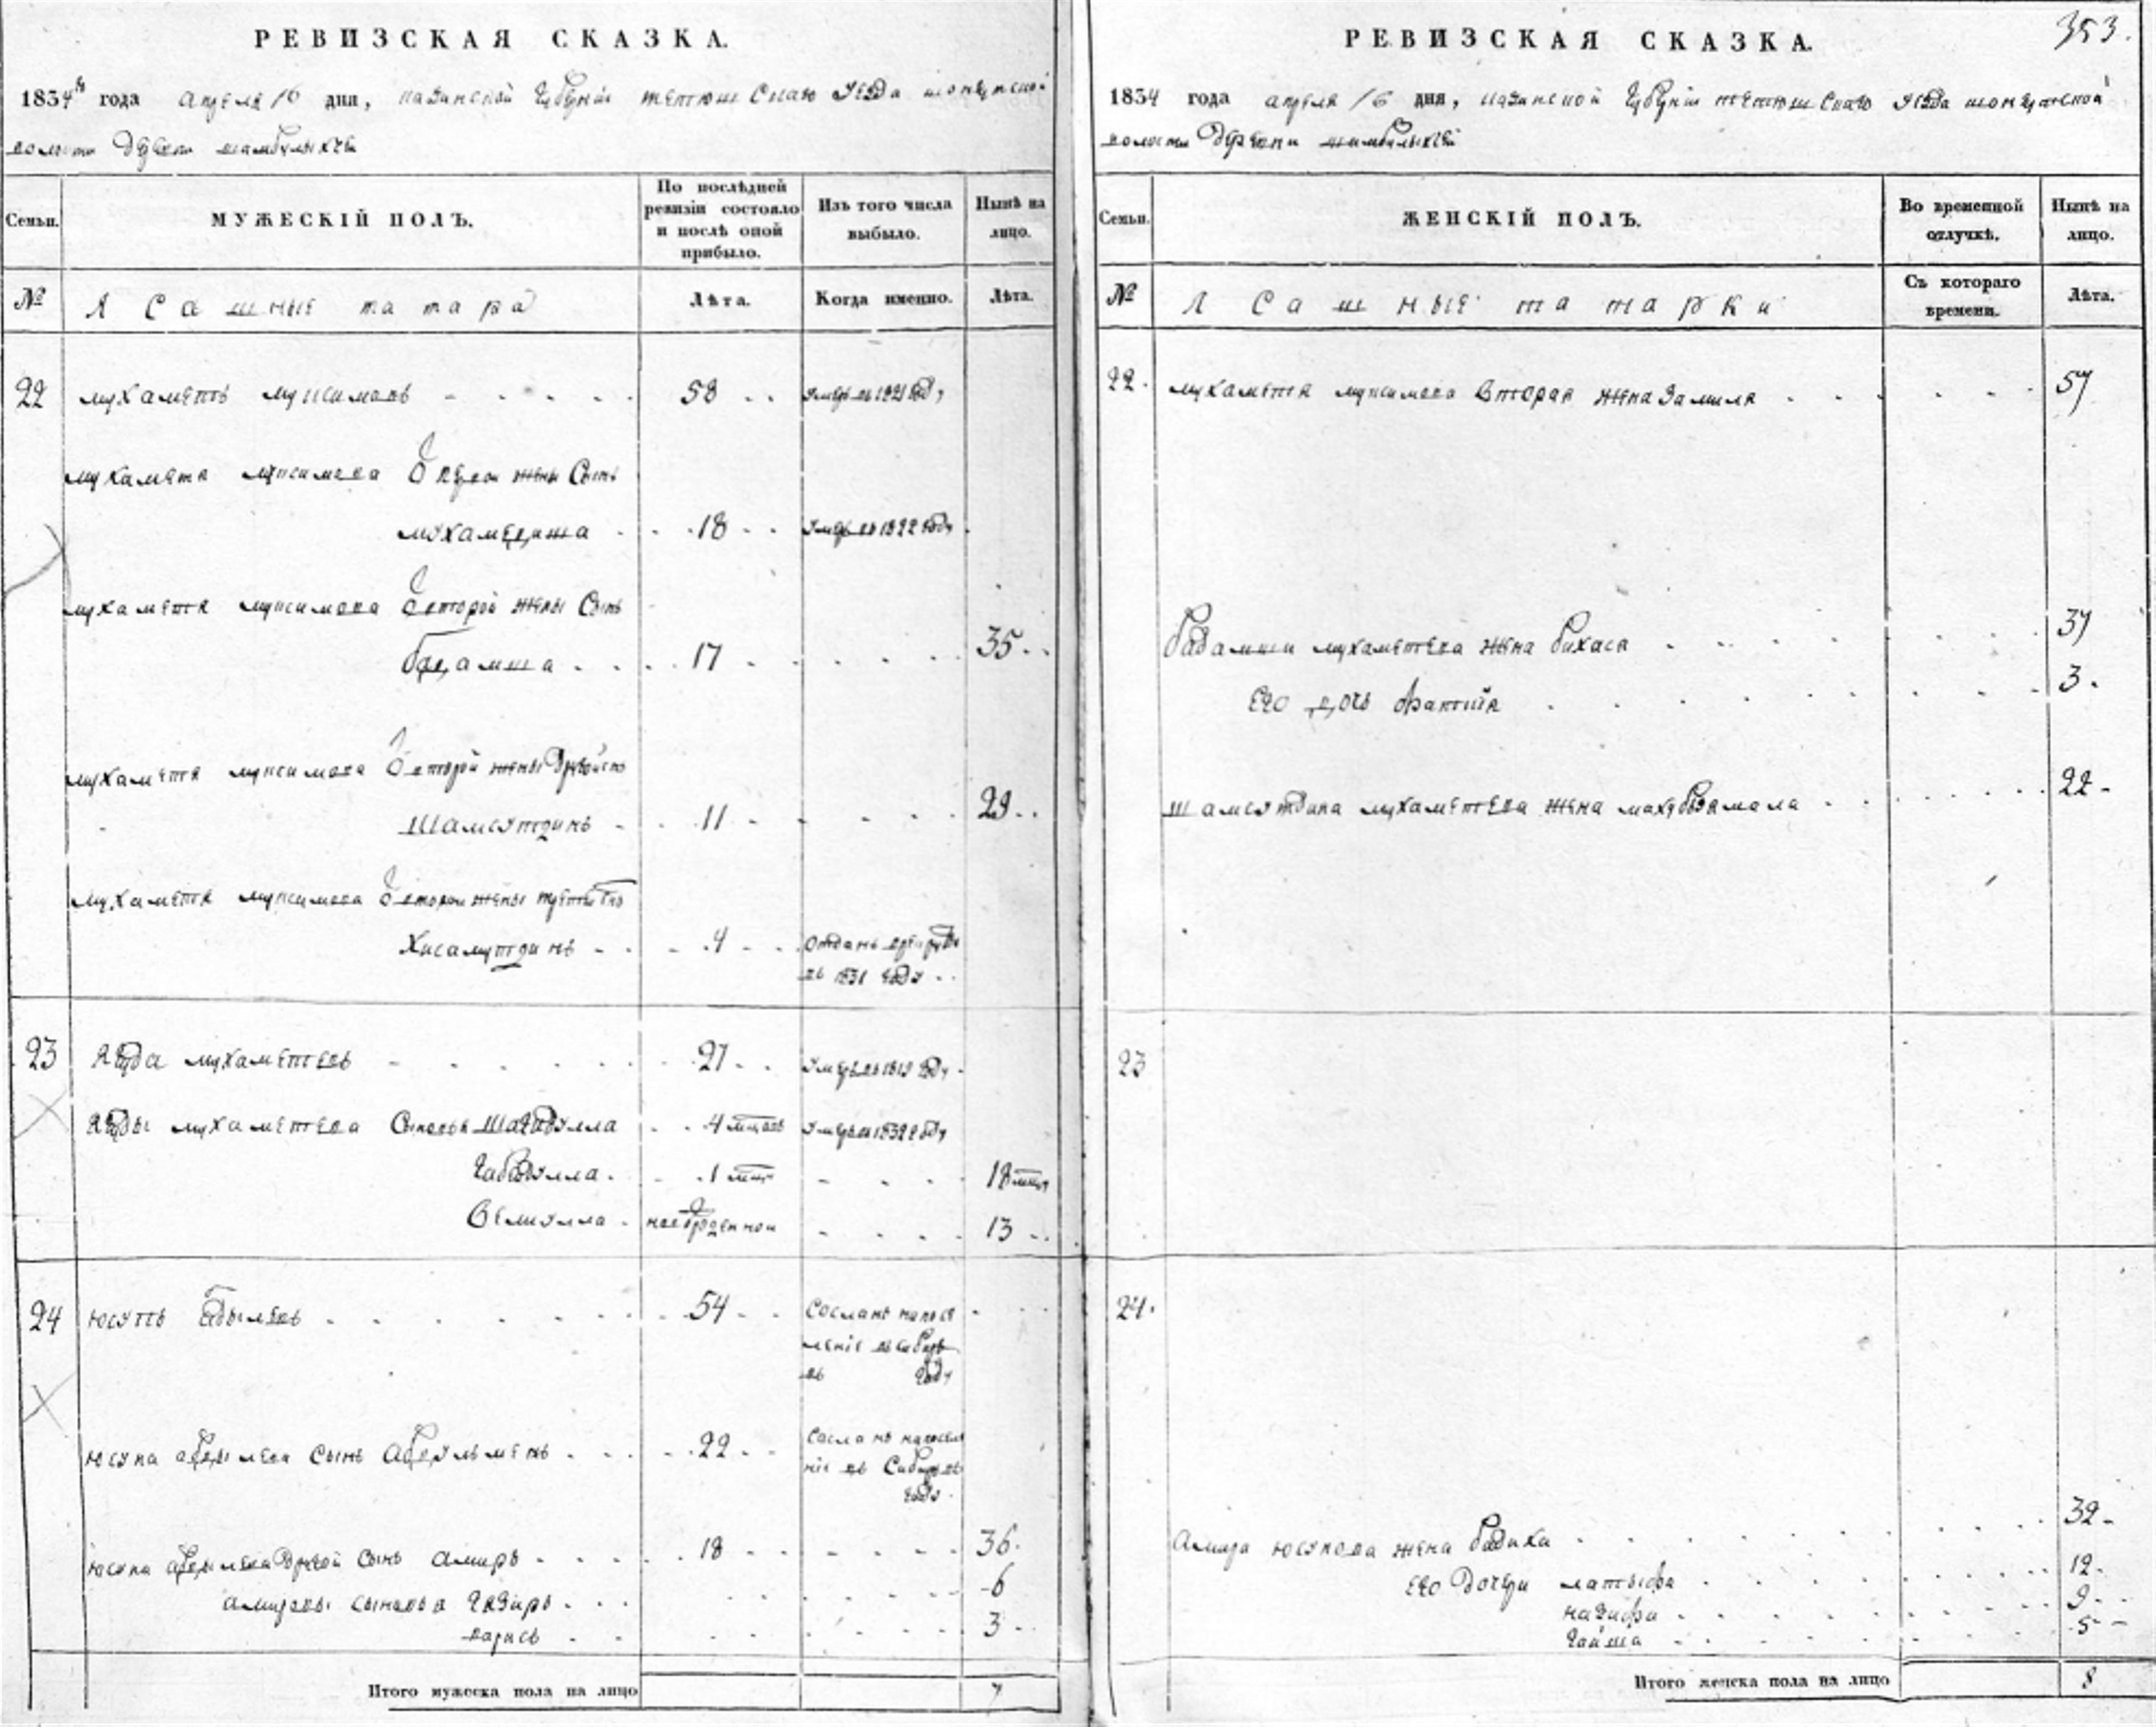 РЕВИЗСКАЯ СКАЗКА.
1834 года апреля 16 дня, казанской губернии тетюшскаго уезда
волости деревни
Семьи.
МУЖЕСКІЙ ПОЛЪ.
По послѣдней ревизіи состояло и послѣ оной прибыло.
Изъ того числа выбыло.
Нынѣ на лицо.
№
Лашманые татара
Лѣта.
Когда именно.
Лѣта.
22 мухаметъ муксимовъ 58 умеръ в 1821 году
мухаметя муксимова о первой жены сынъ
мухамедиша 18 умеръ в 1822 году
мухаметя муксимова о второй жены сынъ
бадамша 17 35
мухаметя муксимова о второй жены другой сынъ
Шамсутдинъ 11 29
мухаметя муксимова о второй жены третий сынъ
Хисамутдинъ 4 отданъ в рекруты
въ 1831 году
23 ягуда мухаметевъ 27 умеръ в 1819 году
ягуды мухаметева сыновья Шагидулла 4 умеръ в 1832 году
Габидулла 1 18
Велиулла новорожденной 13
24 юсупъ абдылевъ 54 Сосланъ на посе
ленiе въ сибирь
въ году
юсупа абдылева сынъ абдульменъ 22 Сосланъ на поселе
нiе въ Сибирь въ
году
юсупа абдылева другой сынъ амиръ 18 36
амировы сыновья Гадиръ 6
варисъ 3
Итого мужеска пола на лицо 7
353.
РЕВИЗСКАЯ СКАЗКА.
1834 года апреля 16 дня, казанской губернии тетюшскаго уезда
волости деревни
Семьи.
ЖЕНСКІЙ ПОЛЪ.
Во временной отлучкѣ.
Нынѣ на лицо.
№
Лашманые татарки
Съ котораго времени.
Лѣта.
22. мухаметя муксимова вторая жена Замиля 57
бадамши мухаметева жена бикаса 37
Его дочь Фатiйя 3
Шамсутдина мухаметева жена махубзямала 22
23
24.
Амира юсупова жена бадика 32
Его дочери латыфа 12
назифа 9
гайша 5
Итого женска пола на лицо 8